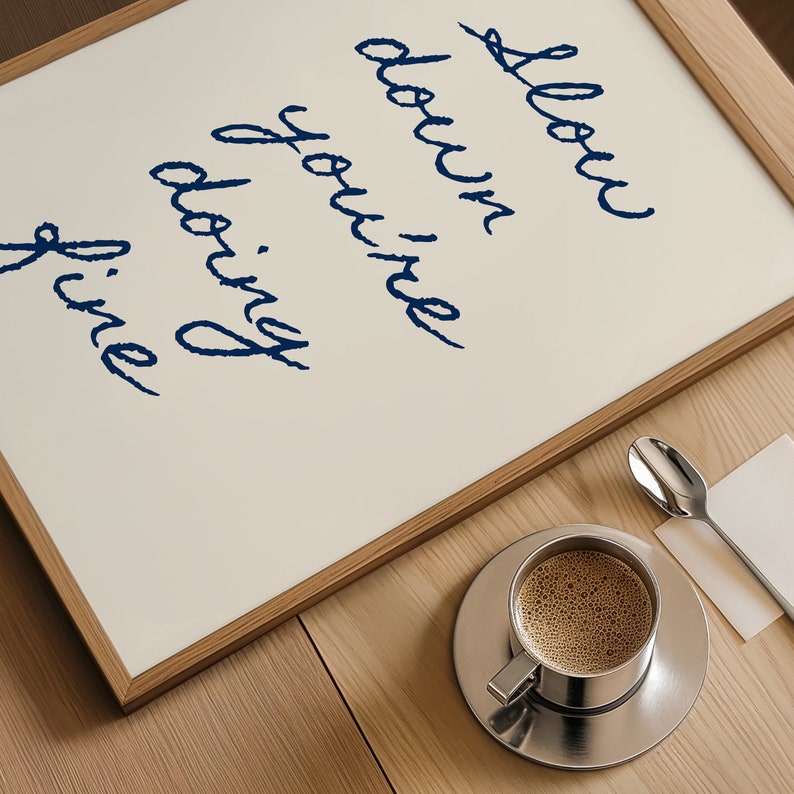 Slow
down
you're
doing
fine